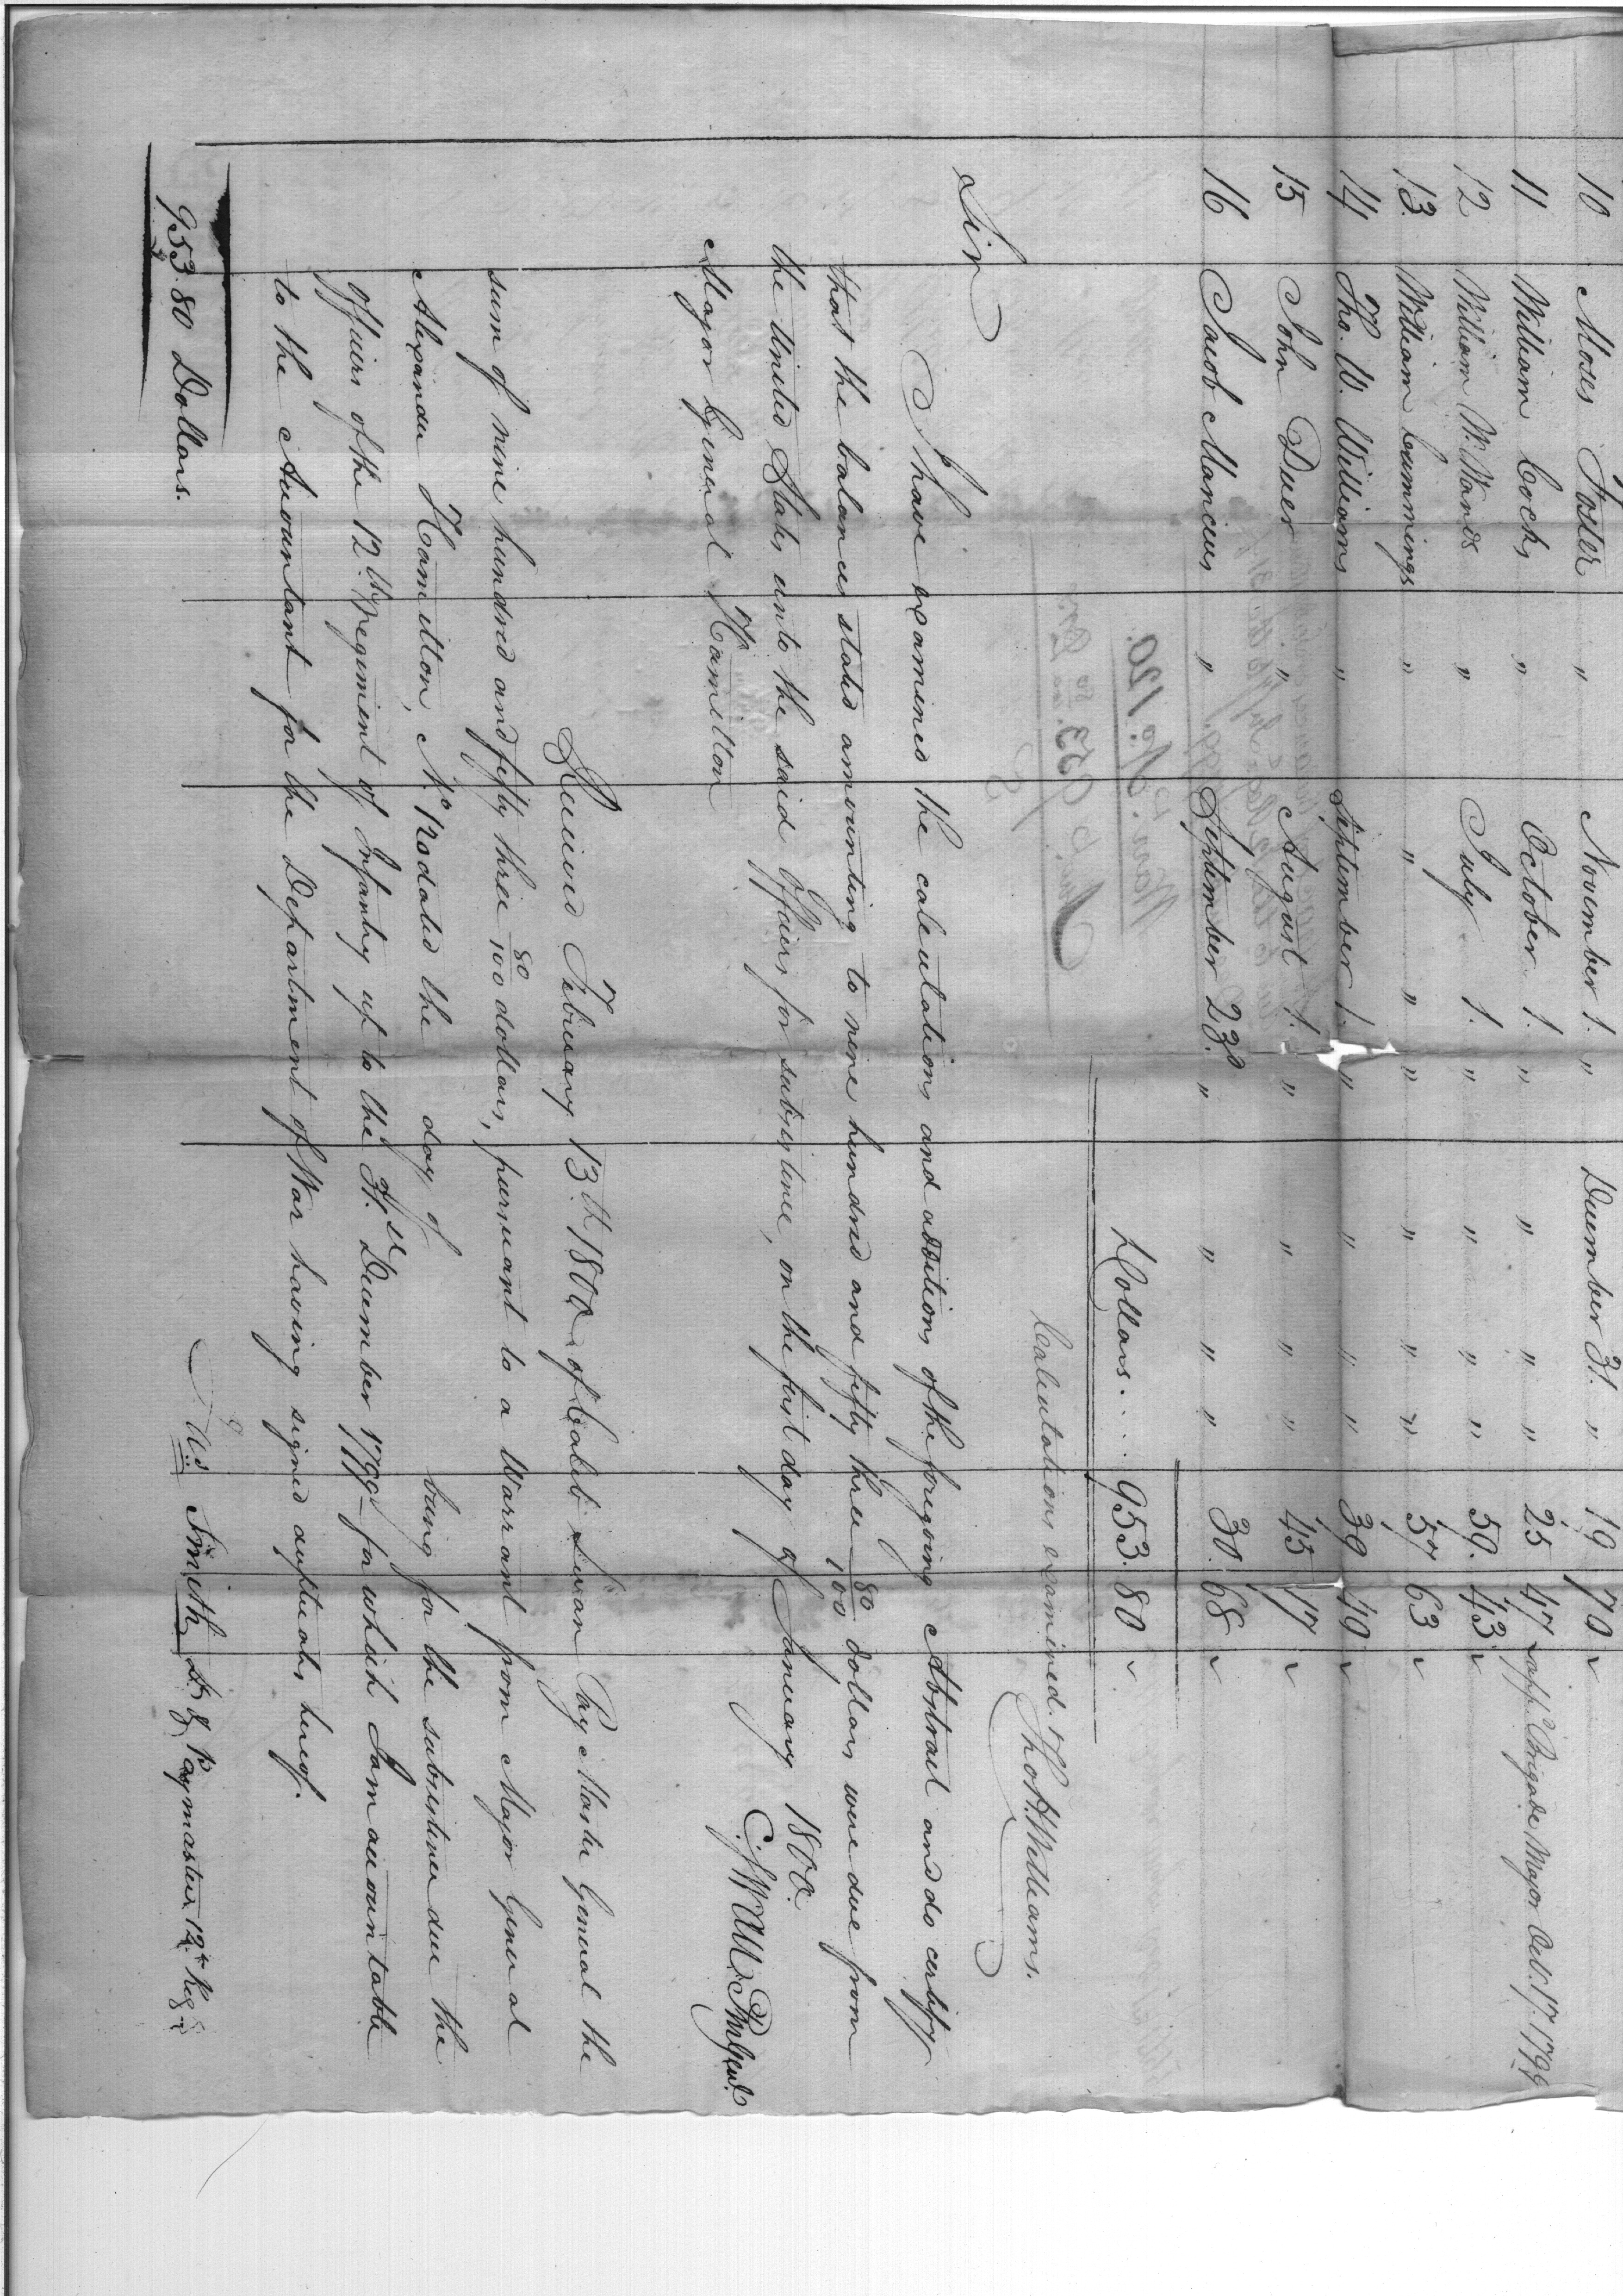 10 Moses Foster " November 1. " December 31. " 19 70
11 William Cocks " October 1. " " " " 25 47 app.d Brigade Major Oct. 17. 1799
12 William W. Wands " July 1. " " " " 59. 43
13. William Cummings " " " " " " " 57 63
14 Tho. W. Williams " September 1. " " " " 39 40
15 John Duer " August 1. " " " " 45 17
16 Jacob Mancius " September 23d. " " " " 30. 68
Dollars . . . 953. 80
Calculations examined. Tho. H. Williams.
Sir
I have examined the calculations and additions of the foregoing Abstract and do certify
that the balances stated amounting to nine hundred and fifty three 80/100 dollars were due from
the United States unto the said Officers for subsistence, on the first day of January 1800.
C. Swan P.M. Genl.
Major General Hamilton
Received February 13.th 1800. of Caleb Swan Pay Master General the
sum of nine hundred and fifty three 80/100 dollars, pursuant to a Warrant from Major General
Alexander Hamilton, No. 120 dated the day of being for the subsistence due the
officers of the 12.th regiment of Infantry up to the 31.st December 1799 for which I am accountable
to the Accountant for the Department of War having signed duplicates hereof.
953 80 Dollars.
W.S. Smith Lt & Paymaster 12.th Reg.t
Warr.t No. 120.